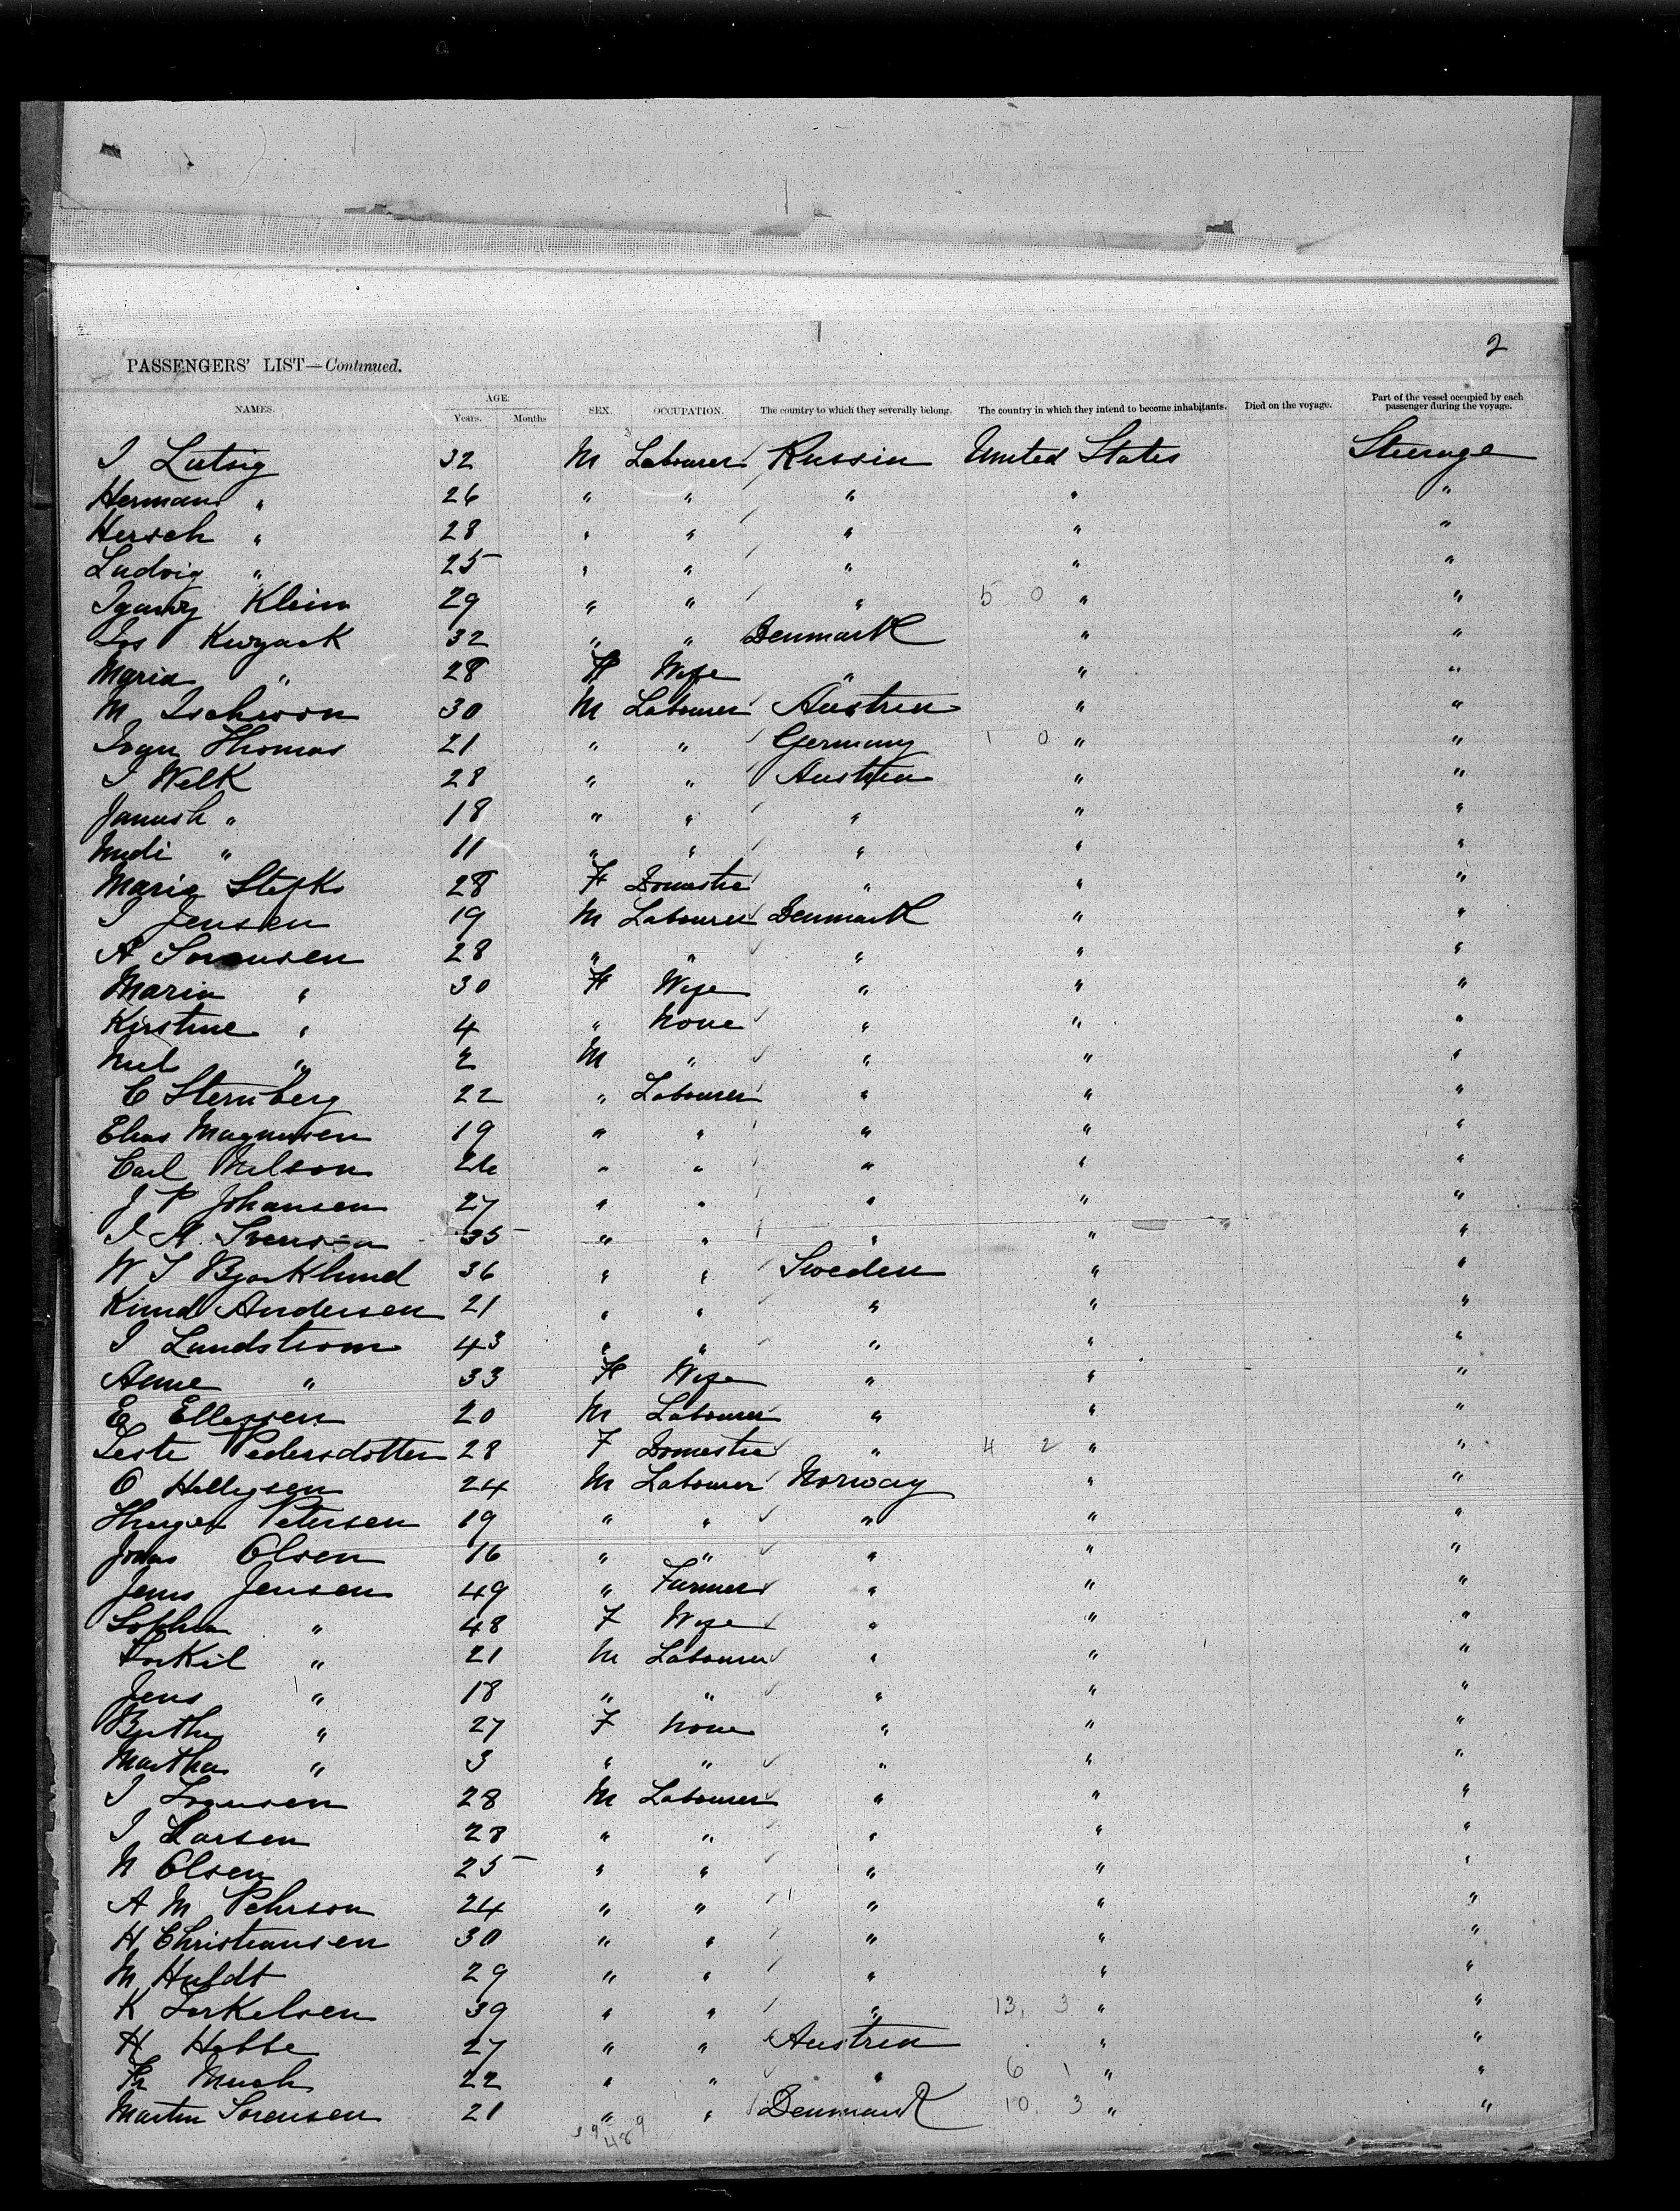 2
PASSENGERS' LIST—Continued.
NAMES. AGE. Years. Months SEX. OCCUPATION. The country to which they severally belong. The country in which they intend to become inhabitants. Died on the voyage. Part of the vessel occupied by each passenger during the voyage.
I Lutsig 32 M Labourer Russia United States Steerage
Herman " 26 " " " " "
Hersch " 28 " " " " "
Ludvig " 25 " " " " "
Klein 29 " " " 5 0 " "
32 " " Denmark " "
Maria " 28 F Wife " " "
M 30 M Labourer Austria " "
Thomas 21 " " Germany 1 0 " "
I Welk 28 " " Austria " "
Janush " 18 " " " " "
" 11 " " " " "
Maria 28 F Domestic " " "
I Jensen 19 M Labourer Denmark " "
A Sorensen 28 " " " " "
Maria " 30 F Wife " " "
Kirstine " 4 " None " " "
" 2 M " " " "
C Sternberg 22 " Labourer " " "
Elias Magnusen 19 " " " " "
Carl Nilson 26 " " " " "
J P Johansen 27 " " " " "
I A Svenson 35 " " " " "
W I Bjorklund 36 " " Sweden " "
Knud Andersen 21 " " " " "
I Lundstrom 43 " " " " "
Anne " 33 F Wife " " "
E Ellessen 20 M Labourer " " "
Pedersdotter 28 F Domestic " 4 2 " "
O Hellgsen 24 M Labourer Norway " "
Petersen 19 " " " " "
Jonas Olsen 16 " " " " "
Jens Jensen 49 " Farmer " " "
Sophia " 48 F Wife " " "
Torkil " 21 M Labourer " " "
Jens " 18 " " " " "
Bertha " 27 F None " " "
Martha " 3 " " " " "
I 28 M Labourer " " "
I Larsen 28 " " " " "
N Olsen 25 " " " " "
A M Pehrson 24 " " " " "
H Christiansen 30 " " " " "
M Huldt 29 " " " " "
K Torkelsen 39 " " " 13, 3 " "
H Hobbe 27 " " Austria " "
Fr Much 22 " " " 6 1 " "
Martin Sorensen 21 " " Denmark 10 3 " "
39 9
48